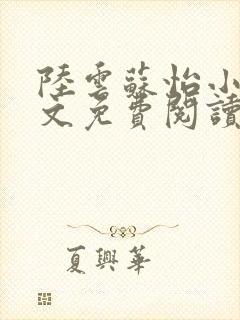 陸雲蘇怡小
文免費閱讀
夏興華